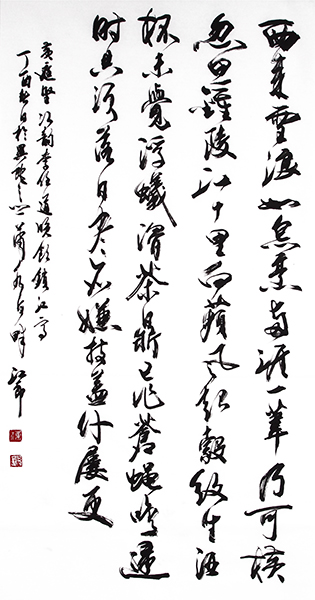 西来雪浪如炰烹兩涯一葦乃可横
忽思鍾陵江十里白蘋風起縠紋生酒
杯未覺浮蟻滑茶鼎已作蒼蠅鳴歸
時共須落日盡亦嫌持蓋仆屢更
黄庭堅次韵李任道晚飲鎖江亭
丁酉秋日於